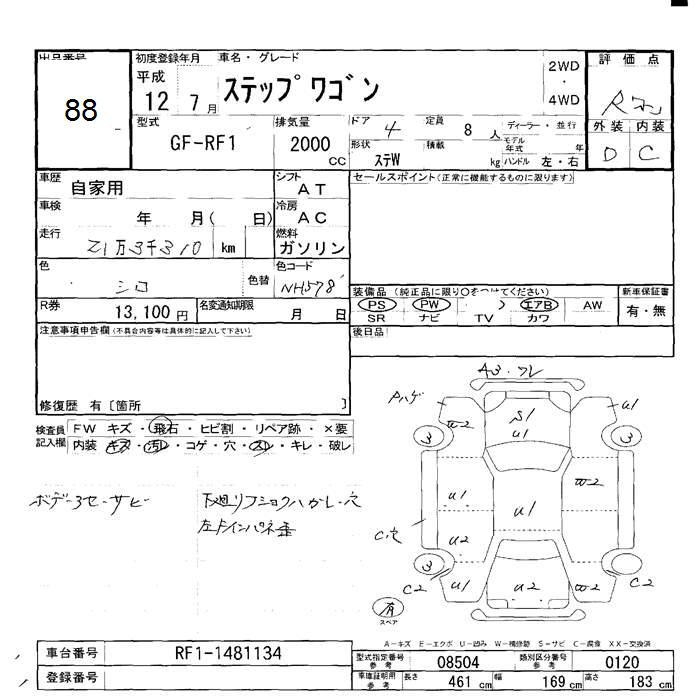 出品番号
88
初度登録年月 車名・グレード
平成
12 7月 ステップワゴン
2WD
・
4WD
評価点
外装 内装
D C
型式 排気量 ドア 4 定員 8人 ディーラー・並行
GF-RF1 2000 cc
形状 ステW 積載 kg
モデル年式 年
ハンドル 左・右
車歴 自家用
シフト AT
車検 年 月( 日)
冷房 AC
走行 21万3千310 km
燃料 ガソリン
色 シロ 色替
色コード NH578
R券 13,100円 名変通知期限 月 日
セールスポイント(正常に機能するものに限ります)
装備品(純正品に限り○をつけてください)
新車保証書
PS PW ( ) エアB AW
有・無
SR ナビ TV カワ
後日品
注意事項申告欄(不具合内容等は具体的に記入して下さい)
修復歴 有〔箇所 〕
検査員記入欄
FW キズ・飛石・ヒビ割・リペア跡・×要
内装 キズ・汚レ・コゲ・穴・スレ・キレ・破レ
A3・ワレ
Aハゲ
W2 S1 U1 U1
3 3
U1 U1 W2
U2
C穴
3
C2 U1 U2 W2 C2
有
スペア
A-キズ E-エクボ U-凹み W-補修跡 S-サビ C-腐食 XX-交換済
車台番号 RF1-1481134
登録番号
型式指定番号 参考 08504 類別区分番号 参考 0120
車庫証明用 参考 長さ 461cm 幅 169cm 高さ 183cm